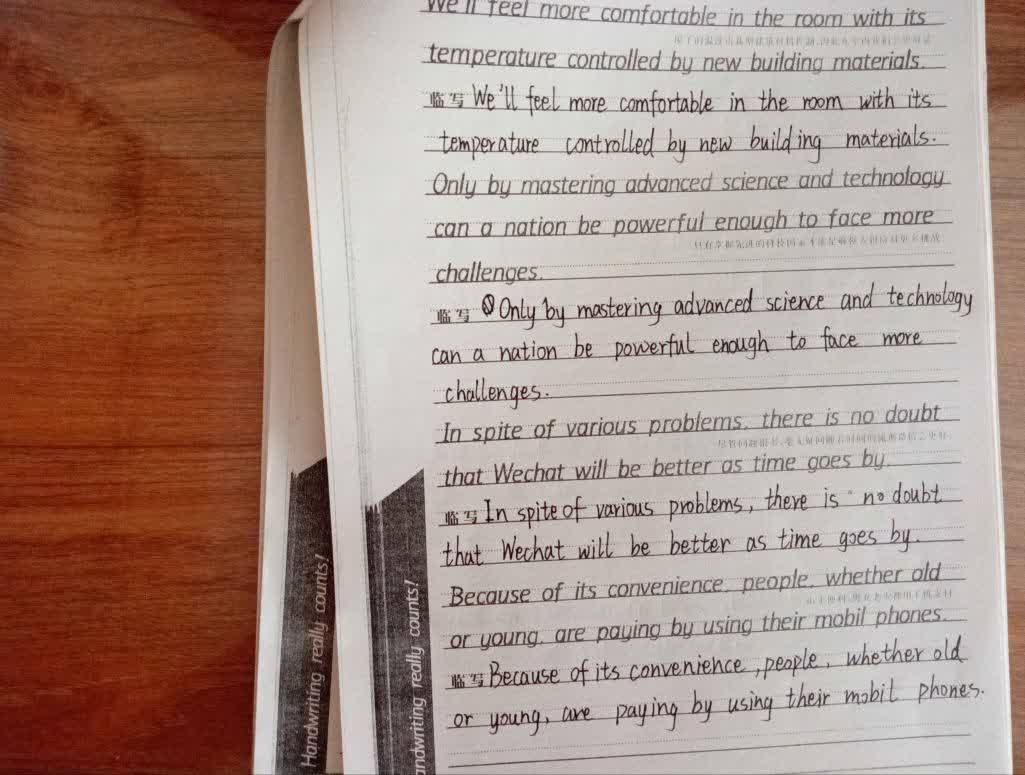 We'll feel more comfortable in the room with its
temperature controlled by new building materials.
临写 We'll feel more comfortable in the room with its
temperature controlled by new building materials.
Only by mastering advanced science and technology
can a nation be powerful enough to face more
challenges.
临写 Only by mastering advanced science and technology
can a nation be powerful enough to face more
challenges.
In spite of various problems, there is no doubt
that Wechat will be better as time goes by.
临写 In spite of various problems, there is no doubt
that Wechat will be better as time goes by.
Because of its convenience, people, whether old
or young, are paying by using their mobil phones.
临写 Because of its convenience, people, whether old
or young, are paying by using their mobil phones.
Handwriting really counts!
andwriting really counts!